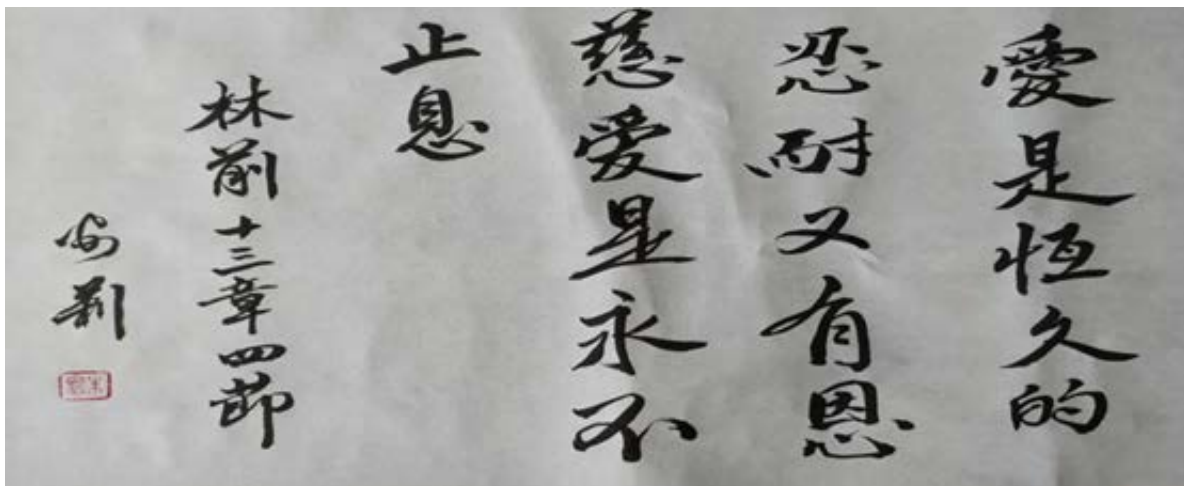 愛是恆久的
忍耐又有恩
慈爱是永不
止息
林前十三章四節